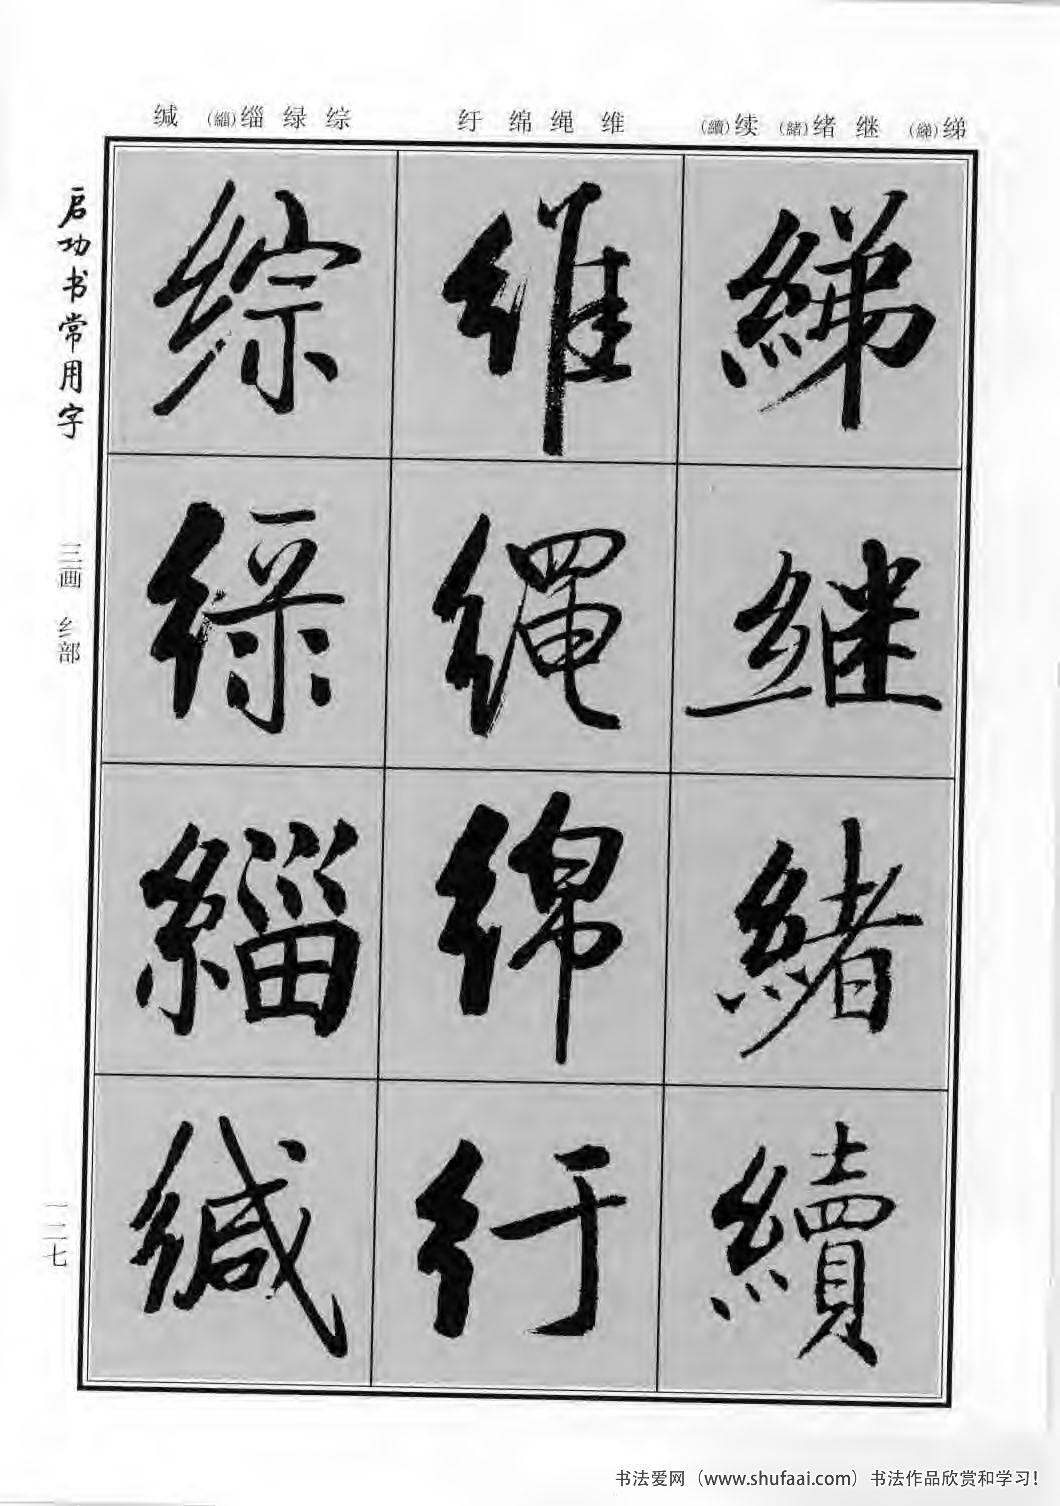 缄 (緇)缁 绿 综
纡 绵 绳 维
(續)续 (緒)绪 继 (綈)绨
綈
继
緒
續
維
繩
綿
紆
综
緑
緇
缄
启功书常用字
三画 纟部
一二七
书法爱网（www.shufaai.com）书法作品欣赏和学习！